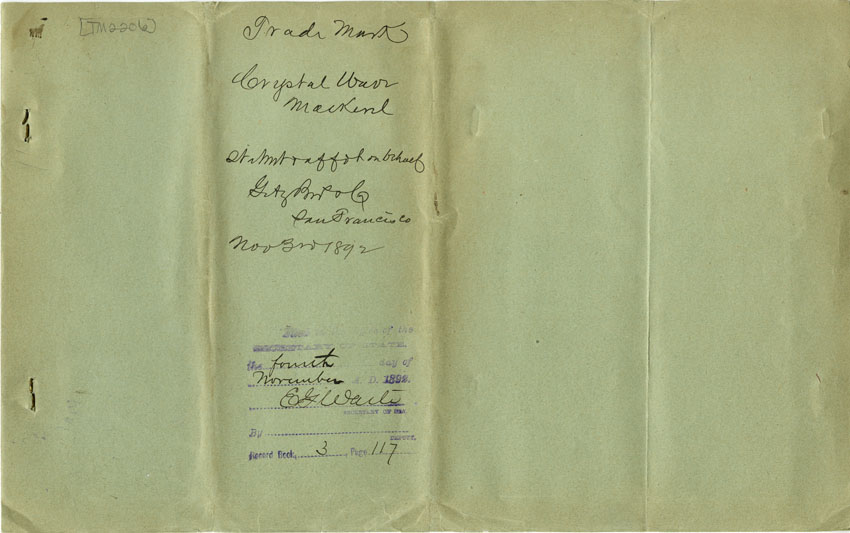 [TM2206]
Trade Mark
Crystal Wave
Mackerel
Statmt & affdt on behalf
Getz Bros & Co
San Francisco
Nov 3rd 1892
of the
SECRETARY OF STATE
the fourth day of
November A. D. 1892.
E G Waite
SECRETARY OF STATE
By
DEPUTY.
Record Book, 3, Page 117